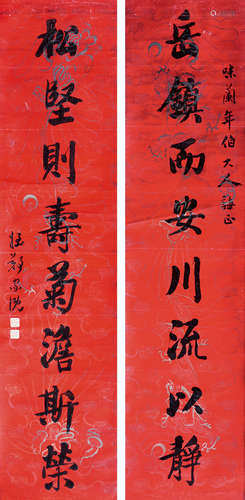 味蘭年伯大人誨正
岳鎮而安川流以靜
松堅則壽菊澹斯榮